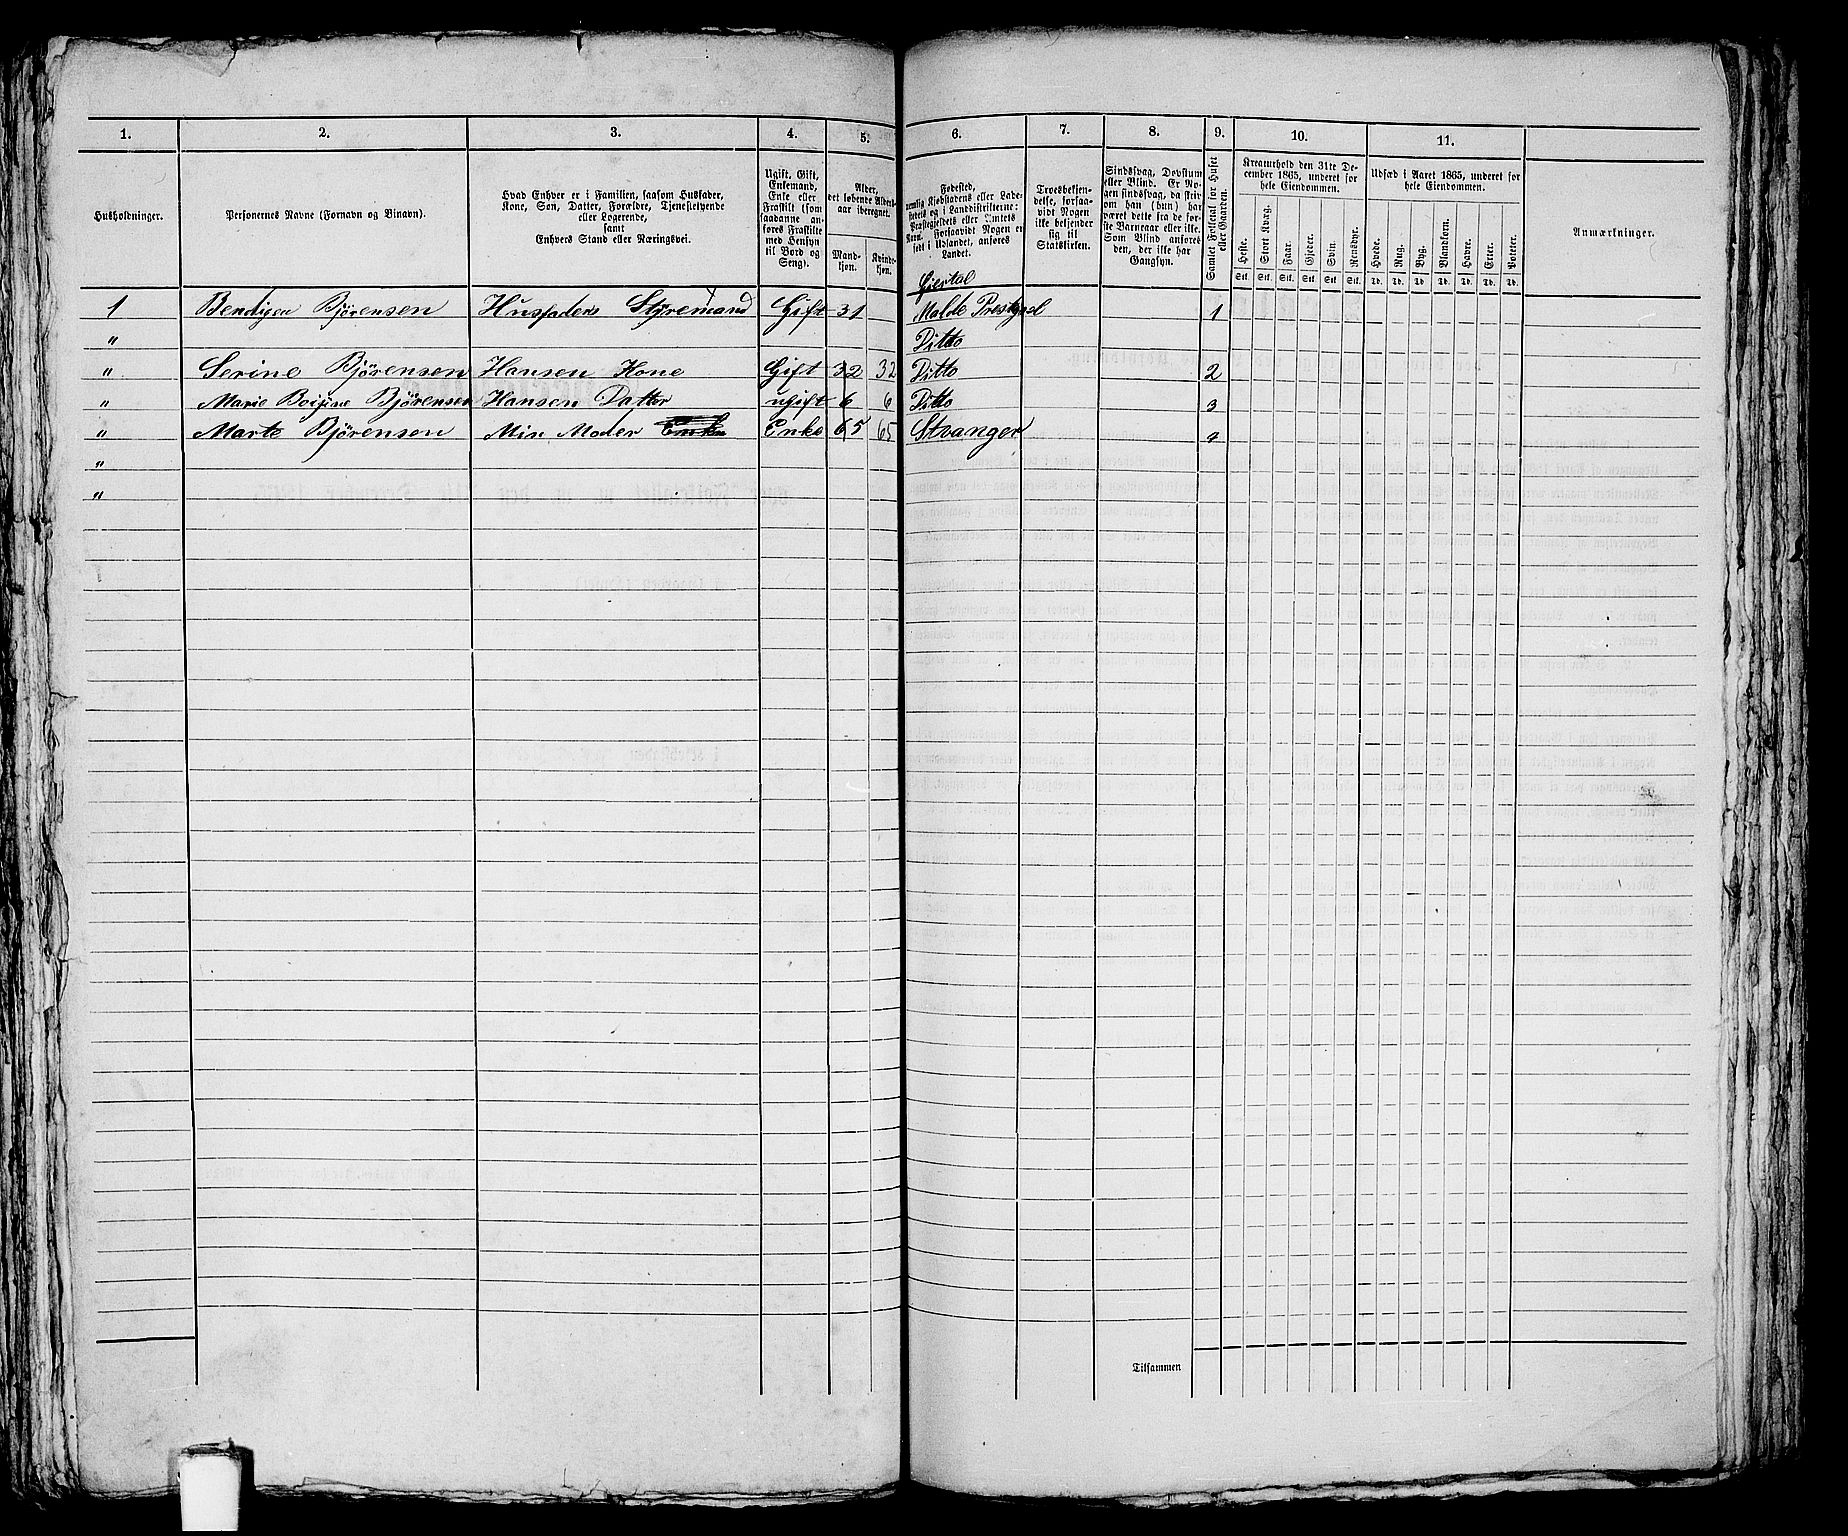 1. 2. 3. 4. 5. 6. 7. 8. 9. 10. 11.
Husholdninger.
Personernes Navne (Fornavn og Binavn).
Hvad Enhver er i Familien, saasom Husfader,
Kone, Søn, Datter, Forældre, Tjenestetyende
eller Logerende,
samt
Enhvers Stand eller Næringsvei.
Ugift, Gift,
Enkemand,
Enke eller
Fraskilt (som
saadanne an-
føres Fraskilte
med Hensyn
til Bord og
Seng).
Alder,
det løbende Alders-
aar iberegnet.
Mand-
kjøn.
Kvind-
kjøn.
Fødested,
nemlig Kjøbstadens eller Lade-
stedets og i Landdistrikterne:
Præstegjeldets eller Amtets
Navn. Forsaavidt Nogen er
født i Udlandet, anføres
Landet.
Troesbekjen-
delse, forsaa-
vidt Nogen
ikke bekjender
sig til
Statskirken.
Sindssvag, Døvstum
eller Blind. Er No-
gen sindssvag, da skriv
om han (hun) har
været dette fra de før-
ste Barneaar eller ikke.
Som Blind anføres
den, der ikke har
Gangsyn.
Samlet Folketal for Huset
eller Gaarden.
Kreaturhold den 31te De-
cember 1865, underet for
hele Eiendommen.
Heste. Stort Kvæg. Faar. Gjeder. Svin. Rensdyr.
Stk. Stk. Stk. Stk. Stk. Stk.
Udsæd i Aaret 1865, underet for
hele Eiendommen.
Hvede. Rug. Byg. Blandkorn. Havre. Erter. Poteter.
Td. Td. Td. Td. Td. Td. Td.
Anmærkninger.
1 Bendigen Bjørensen Husfaders Styremand Gift 31 Malde Prestgjel 1
" Ditto
" Serine Bjørensen Hansen Kone Gift 32 32 Ditto 2
" Marie Bjørensen Hansen Datter ugift 6 6 Ditto 3
" Marte Bjørensen Min Moder Enke 65 65 Stvanger 4
"
"
Tilsammen